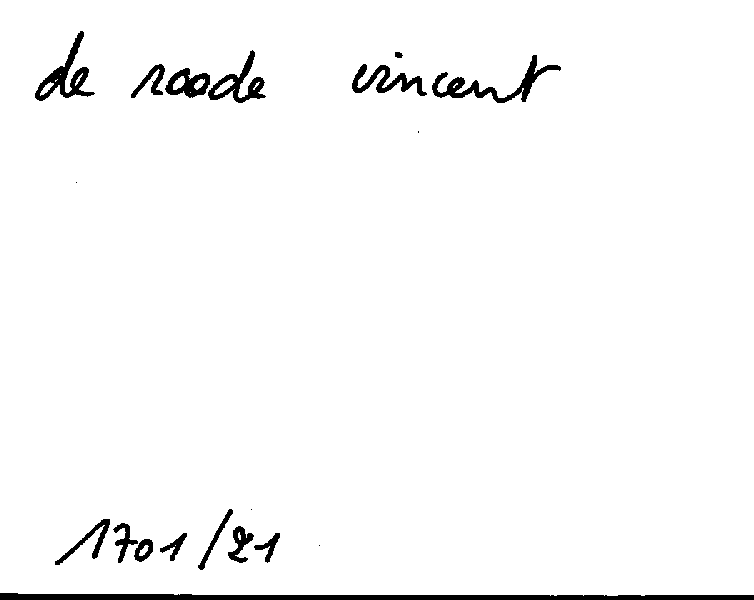 de roode vincent
1701/21